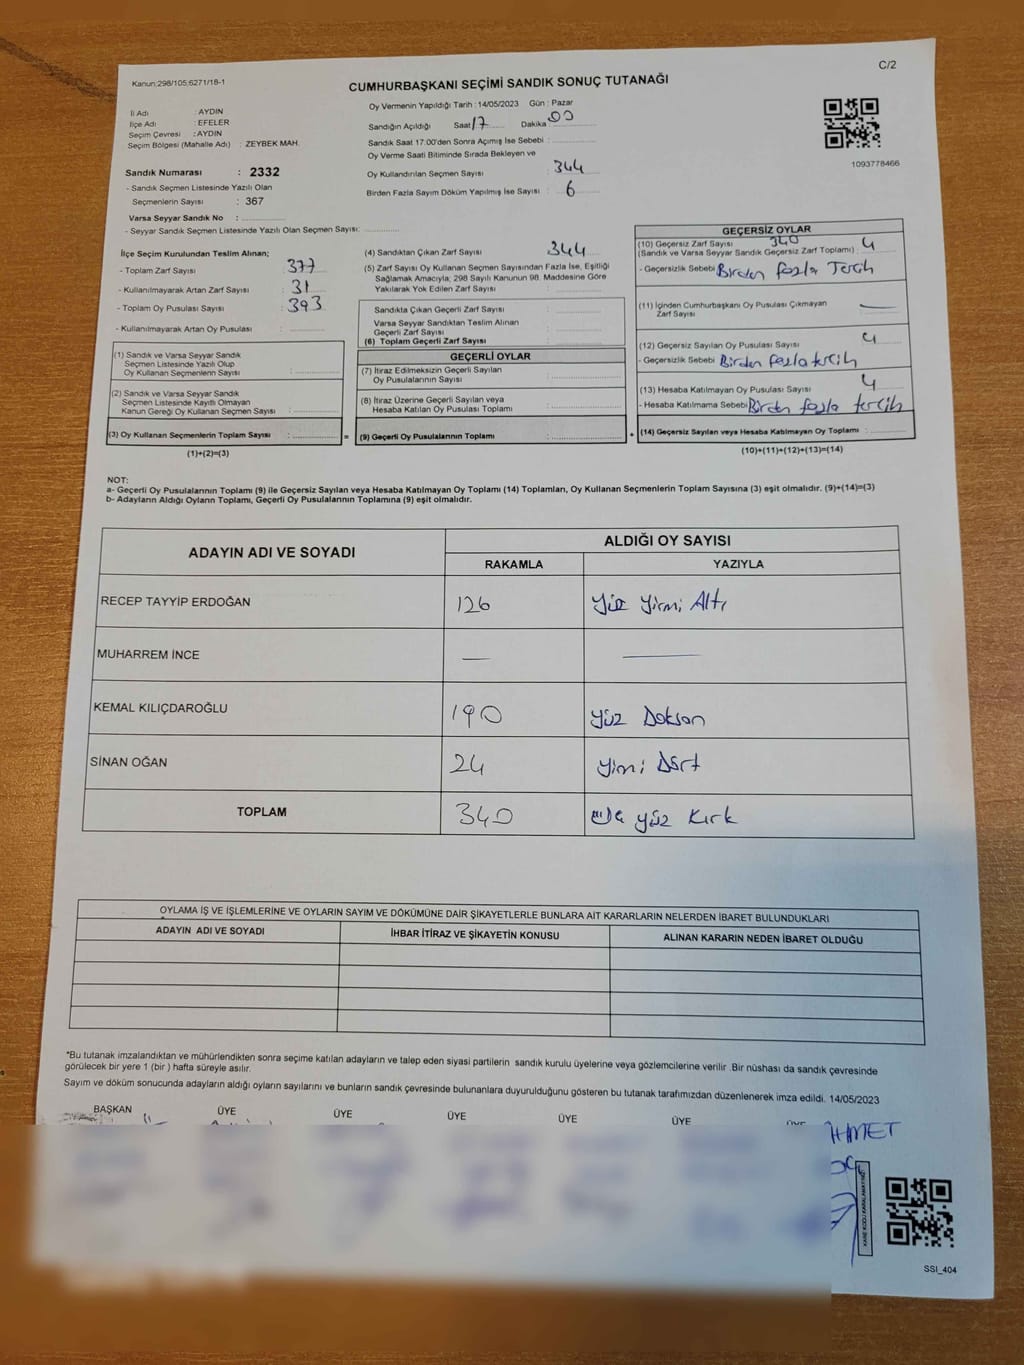 Kanun:298/105;6271/18-1
C/2
CUMHURBAŞKANI SEÇİMİ SANDIK SONUÇ TUTANAĞI
İli Adı : AYDIN
İlçe Adı : EFELER
Seçim Çevresi : AYDIN
Seçim Bölgesi (Mahalle Adı) : ZEYBEK MAH.
Sandık Numarası : 2332
- Sandık Seçmen Listesinde Yazılı Olan
Seçmenlerin Sayısı : 367
Varsa Seyyar Sandık No :
- Seyyar Sandık Seçmen Listesinde Yazılı Olan Seçmen Sayısı:
Oy Vermenin Yapıldığı Tarih : 14/05/2023 Gün : Pazar
Sandığın Açıldığı Saat 17 Dakika 00
Sandık Saat 17.00'den Sonra Açımış İse Sebebi :
Oy Verme Saati Bitiminde Sırada Bekleyen ve
Oy Kullandırılan Seçmen Sayısı : 344
Birden Fazla Sayım Döküm Yapılmış İse Sayısı : 6
1093778466
İlçe Seçim Kurulundan Teslim Alınan;
- Toplam Zarf Sayısı : 377
- Kullanılmayarak Artan Zarf Sayısı : 31
- Toplam Oy Pusulası Sayısı : 393
- Kullanılmayarak Artan Oy Pusulası :
(1) Sandık ve Varsa Seyyar Sandık
Seçmen Listesinde Yazılı Olup
Oy Kullanan Seçmenlerin Sayısı :
(2) Sandık ve Varsa Seyyar Sandık
Seçmen Listesinde Kayıtlı Olmayan
Kanun Gereği Oy Kullanan Seçmen Sayısı :
(3) Oy Kullanan Seçmenlerin Toplam Sayısı : =
(1)+(2)=(3)
(4) Sandıktan Çıkan Zarf Sayısı : 344
(5) Zarf Sayısı Oy Kullanan Seçmen Sayısından Fazla İse, Eşitliği
Sağlamak Amacıyla; 298 Sayılı Kanunun 98. Maddesine Göre
Yakılarak Yok Edilen Zarf Sayısı :
Sandıkta Çıkan Geçerli Zarf Sayısı :
Varsa Seyyar Sandıktan Teslim Alınan
Geçerli Zarf Sayısı :
(6) Toplam Geçerli Zarf Sayısı :
GEÇERLİ OYLAR
(7) İtiraz Edilmeksizin Geçerli Sayılan
Oy Pusulalarının Sayısı :
(8) İtiraz Üzerine Geçerli Sayılan veya
Hesaba Katılan Oy Pusulası Toplamı :
(9) Geçerli Oy Pusulalarının Toplamı : +
GEÇERSİZ OYLAR
(10) Geçersiz Zarf Sayısı 340
(Sandık ve Varsa Seyyar Sandık Geçersiz Zarf Toplamı) : 4
- Geçersizlik Sebebi : Birden fazla Tercih
(11) İçinden Cumhurbaşkanı Oy Pusulası Çıkmayan
Zarf Sayısı : —
(12) Geçersiz Sayılan Oy Pusulası Sayısı : 4
- Geçersizlik Sebebi : Birden fazla tercih
(13) Hesaba Katılmayan Oy Pusulası Sayısı : 4
- Hesaba Katılmama Sebebi : Birden fazla tercih
(14) Geçersiz Sayılan veya Hesaba Katılmayan Oy Toplamı :
(10)+(11)+(12)+(13)=(14)
NOT:
a- Geçerli Oy Pusulalarının Toplamı (9) ile Geçersiz Sayılan veya Hesaba Katılmayan Oy Toplamı (14) Toplamları, Oy Kullanan Seçmenlerin Toplam Sayısına (3) eşit olmalıdır. (9)+(14)=(3)
b- Adayların Aldığı Oyların Toplamı, Geçerli Oy Pusulalarının Toplamına (9) eşit olmalıdır.
ADAYIN ADI VE SOYADI
ALDIĞI OY SAYISI
RAKAMLA YAZIYLA
RECEP TAYYİP ERDOĞAN 126 Yüz Yirmi Altı
MUHARREM İNCE — —
KEMAL KILIÇDAROĞLU 190 Yüz Doksan
SİNAN OĞAN 24 Yirmi Dört
TOPLAM 340 yüz Kırk
OYLAMA İŞ VE İŞLEMLERİNE VE OYLARIN SAYIM VE DÖKÜMÜNE DAİR ŞİKAYETLERLE BUNLARA AİT KARARLARIN NELERDEN İBARET BULUNDUKLARI
ADAYIN ADI VE SOYADI İHBAR İTİRAZ VE ŞİKAYETİN KONUSU ALINAN KARARIN NEDEN İBARET OLDUĞU
*Bu tutanak imzalandıktan ve mühürlendikten sonra seçime katılan adayların ve talep eden siyasi partilerin sandık kurulu üyelerine veya gözlemcilerine verilir .Bir nüshası da sandık çevresinde
görülecek bir yere 1 (bir ) hafta süreyle asılır.
Sayım ve döküm sonucunda adayların aldığı oyların sayılarını ve bunların sandık çevresinde bulunanlara duyurulduğunu gösteren bu tutanak tarafımızdan düzenlenerek imza edildi. 14/05/2023
BAŞKAN ÜYE ÜYE ÜYE ÜYE ÜYE ÜYE
SSI_404